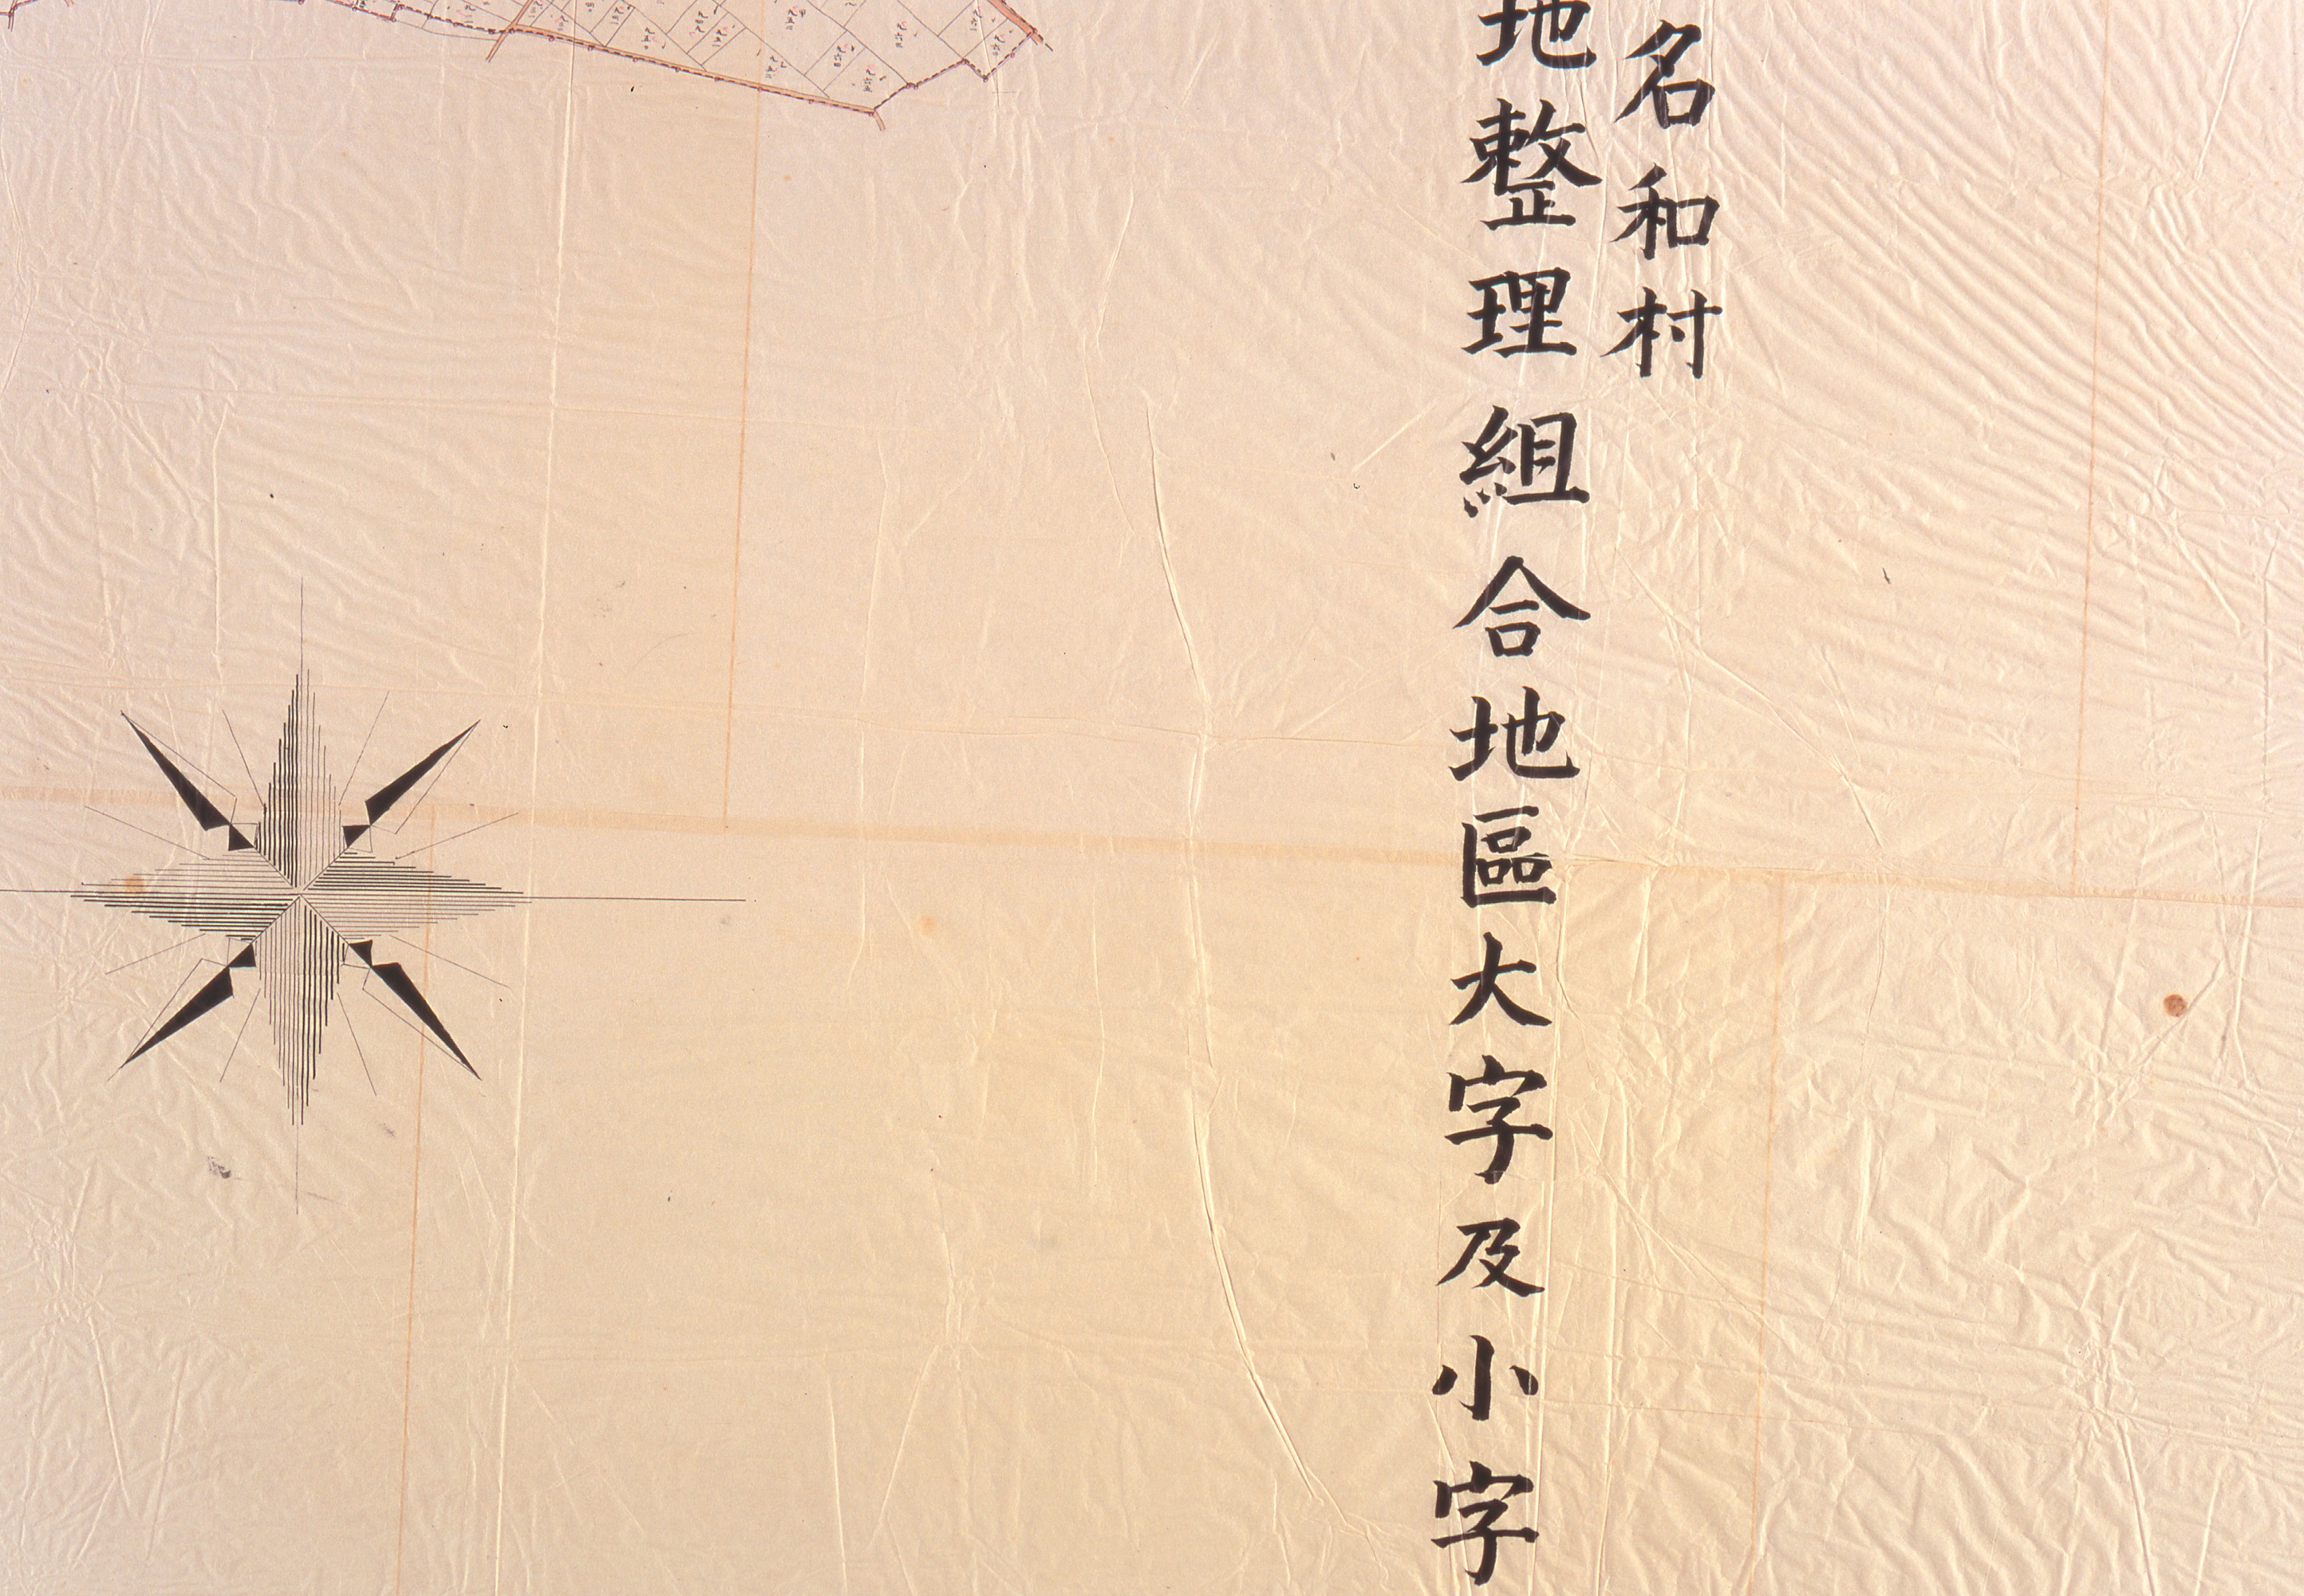 名和村
地整理組合地區大字及小字